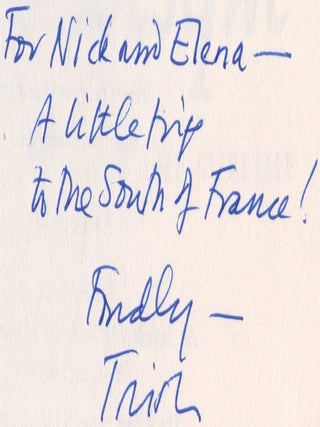 For Nick and Elena —
A little trip
to the South of France!
Fondly —
Trish